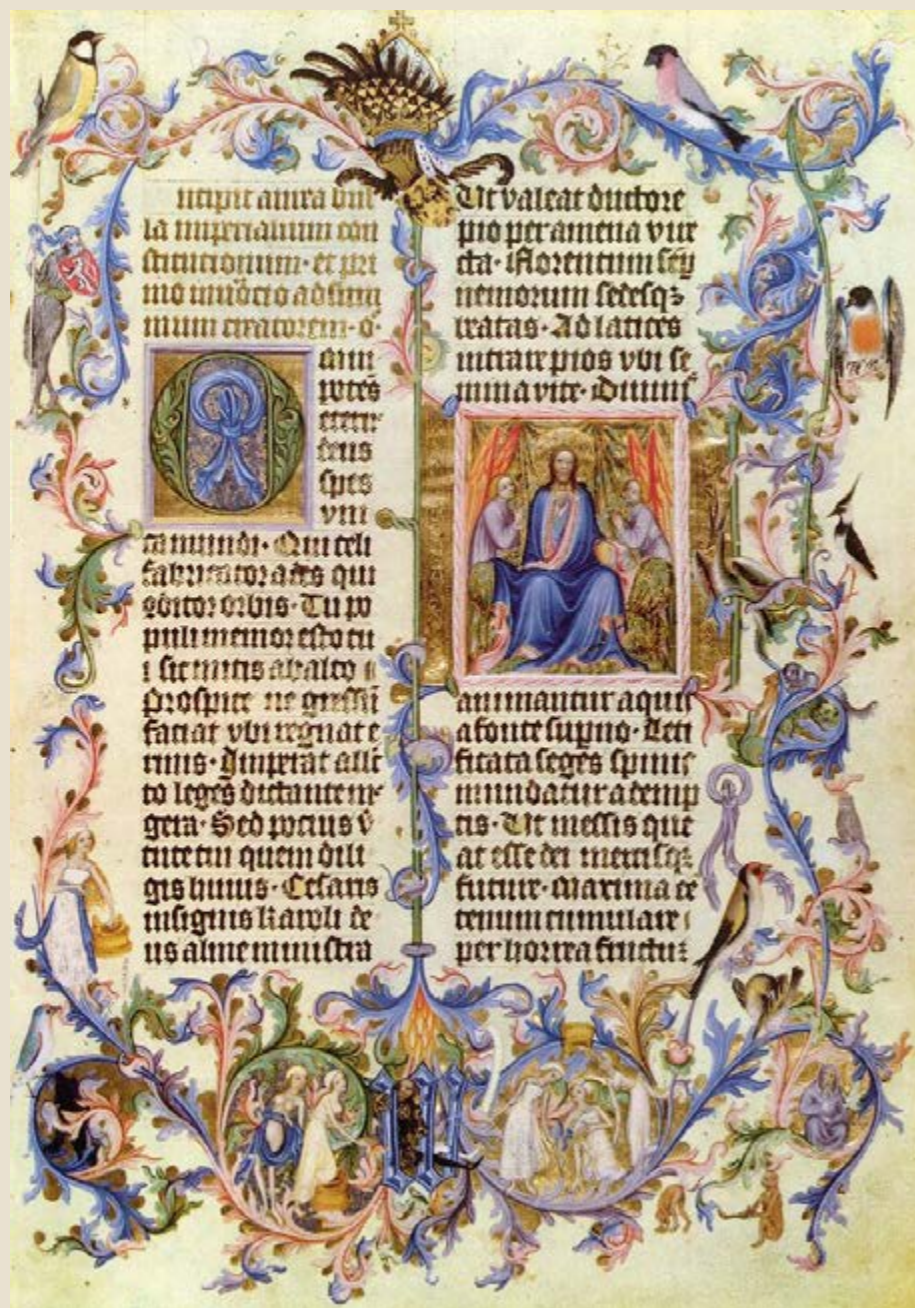 ncipit aurea bul
la imperialium con
stitutionum· et pri
mo inuocio ad sum
mum creatorem· o·
mni
potēs
eterne
deus
spes
vni
ca mundi· Qui celi
fabricator ades qui
9ditor orbis· Tu po
puli memor esto tu
i sic mitis ab alto
Prospice ne gressū
faciat vbi regnat e
rinis· Imperat allec
to leges dictante me
gera· Sed pocius v̄
tute tui quem dili
gis huius· Cesaris
insignis karoli de
us alme ministra
Ut valeat ductore
pio per amena vire
cta· Florentum sep
nemorum sedesqꝫ
beatas· Ad latices
intrare pios vbi se
mina vite· Diuinis
animantur aquis
a fonte sup̄no· Leti
ficata seges spinis
mundatur ademp
tis· Ut messis que
at esse dei mercisqꝫ
future· Maxima cē
tenum cumulare
per horrea fructus
W